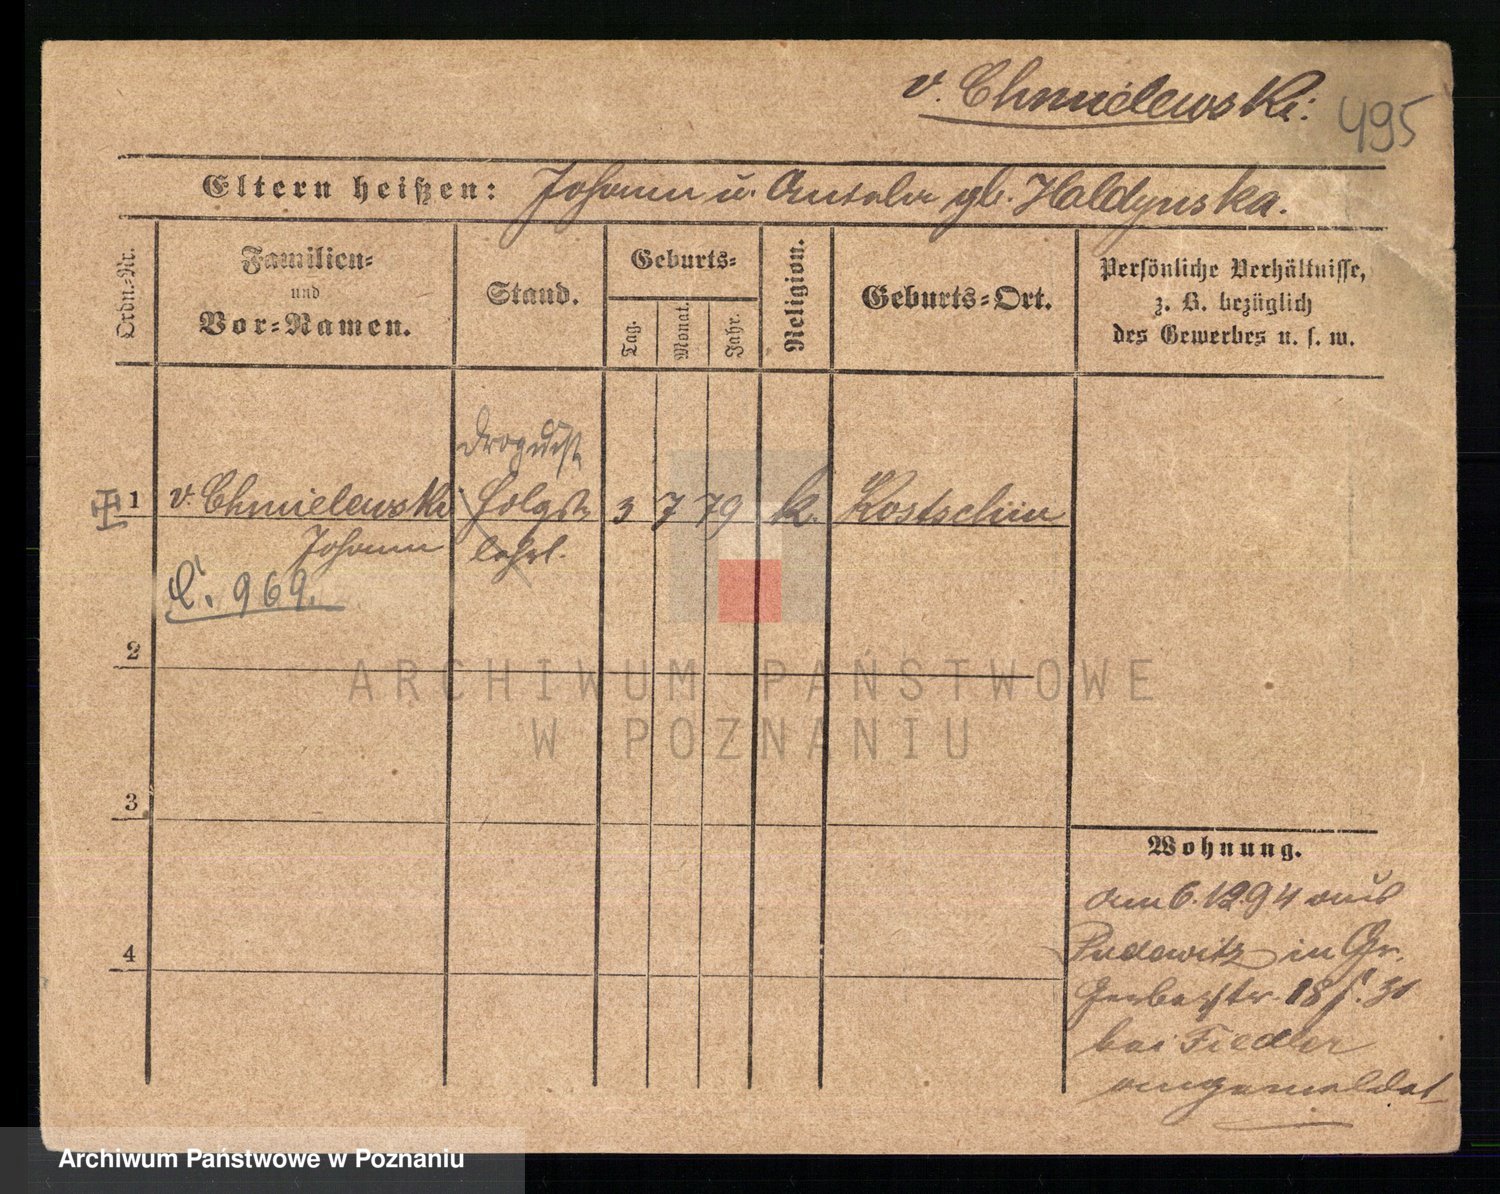 v. Chmielewski. 495
Eltern heißen: Johann u. Antonie geb. Haldynska.
Ordn.-Nr.
Familien-
und
Vor-Namen.
Stand.
Geburts-
Tag.
Monat.
Jahr.
Religion.
Geburts-Ort.
Persönliche Verhältnisse,
z. B. bezüglich
des Gewerbes u. s. w.
Droguist
1 v. Chmielewski 3 7 79 k. Kostschin
Johann lehrl.
969.
2
ARCHIWUM PAŃSTWOWE
W POZNANIU
3
4
Wohnung.
am 6.12.94 aus
Pudewitz in Gr.
Gerberstr. 18
bei Fiedler
angemeldet
Archiwum Państwowe w Poznaniu